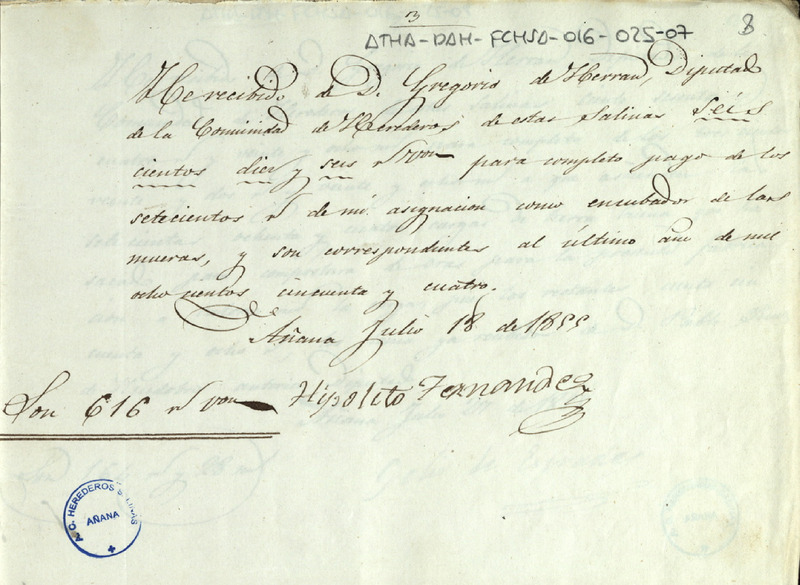 3
ATHA-DAH-FCHSA-016-025-07
8
He recibido de D. Gregorio de Herran, Diputado
de la Comunidad de Herederos de estas Salinas seis
cientos diez y seis rs von para completo pago de los
setecientos rs de mi asignacion como encubador de las
mueras, y son correspondientes al último año de mil
ocho cientos cincuenta y cuatro.
Añana Julio 18 de 1855
Hipolito Fernandez
Son 616 rs von
HEREDEROS SALINAS
AÑANA